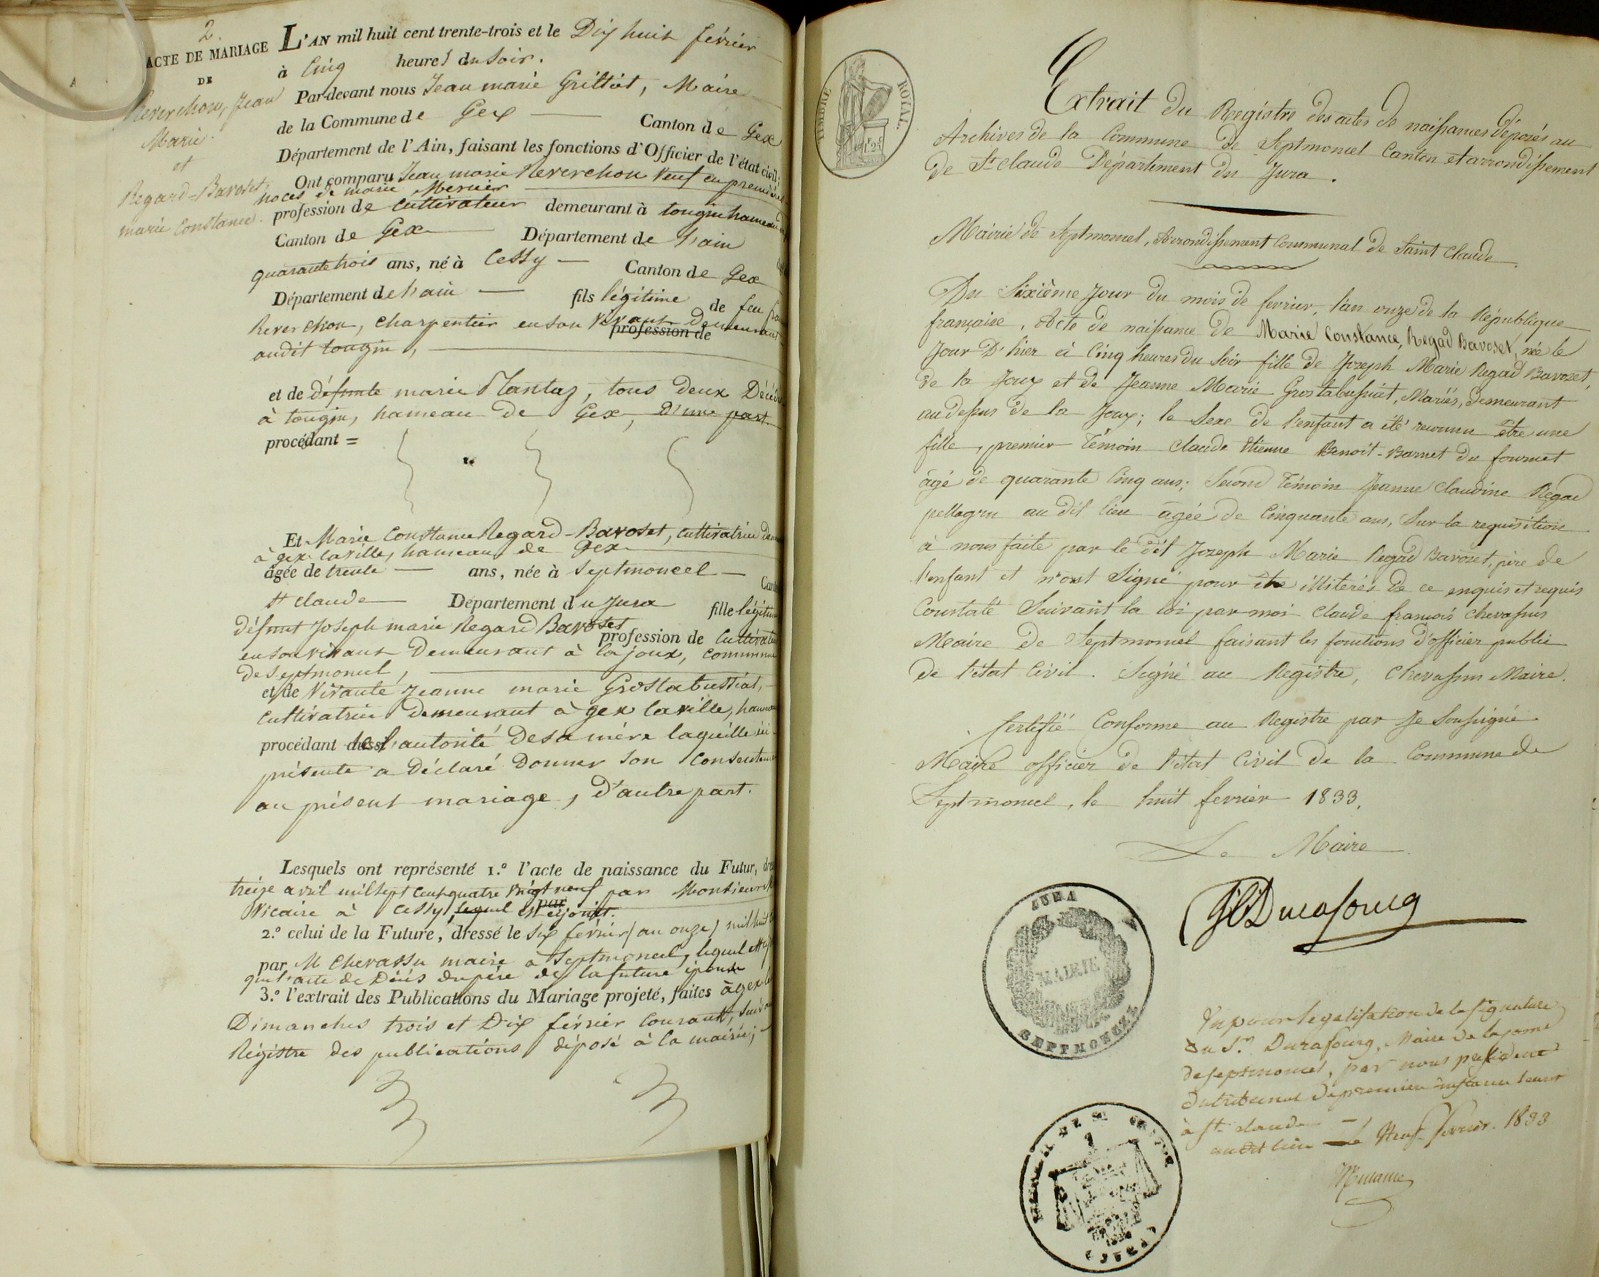 2.
ACTE DE MARIAGE
DE
Reverchon, Jean
Marie
et
Regard-Bavoset,
marie Constance.
L'AN mil huit cent trente-trois et le Dix huit février
à Cinq heures du Soir.
Par-devant nous Jean marie Grillot, Maire
de la Commune de Gex Canton de Gex
Département de l'Ain, faisant les fonctions d'Officier de l'état civil;
Ont comparu Jean marie Reverchon Veuf en premières
noces de marie Mercier
profession de cultivateur demeurant à tougin hameau
Canton de Gex Département de l'ain
quarante trois ans, né à Cessy Canton de Gex
Département de l'ain fils légitime de feu
Reverchon, charpentier en son vivant demeurant
profession de
audit tougin,
et de défunte marie Mantaz, tous deux Décédés
à tougin, hameau de Gex, d'une part
procédant =
Et Marie Constance Regard-Bavoset, cultivatrice
à gex la ville, hameau de Gex
âgée de trente ans, née à Septmoncel
St claude Département du Jura fille légitime
défunt Joseph marie Regard Bavoset
profession de cultivateur
en son vivant demeurant à la joux, commune
de Septmoncel,
et de Vivante Jeanne marie Grostabussiat,
cultivatrice demeurant à gex la ville, hameau
procédant de l'autorité de sa mère laquelle ici
présente a déclaré donner son Consentement
au présent mariage, d'autre part.
Lesquels ont représenté 1.º l'acte de naissance du Futur,
treize avril mil sept cent quatre vingt neuf par Monsieur
Vicaire à Cessy, lequel est cijoint.
2.º celui de la Future, dressé le six février (an onze) mil huit
par M Chevassu maire à Septmoncel, lequel
que l'acte de Décès du père de la future épouse
3.º l'extrait des Publications du Mariage projeté, faites à gex les
Dimanches trois et Dix février courant,
Régistre des publications déposé à la mairie;
TIMBRE ROYAL.
Extrait du Registre des actes de naissances déposés au
Archives de la Commune de Septmoncel Canton et arrondissement
de St claude Département du Jura.
Mairie de Septmoncel, Arrondissement Communal de Saint Claude.
Du Sixième Jour du mois de fevrier, l'an onze de la République
française, Acte de naissance de Marie Constance, Regad Bavoset, née le
Jour D'hier à Cinq heures du Soir fille de Joseph Marie Regad Bavoset,
de la Joux et de Jeanne Marie Grostabussiat, Mariés, demeurant
au dessus de la Joux; le Sexe de l'enfant a été reconnu être une
fille, premier Témoin Claude Etienne Benoit-Barnet du fournet
âgé de quarante Cinq ans; Second Témoin Jeanne Claudine Regad
pellagru au dit lieu agée de Cinquante ans, Sur la requisition
à nous faite par le dit Joseph Marie Regad Bavozet, père de
l'enfant et n'ont Signé pour être illiterés de ce enquis et requis
Constaté Suivant la loi par moi Claude françois Chevassus
Maire de Septmoncel faisant les fonctions d'officier public
de l'état Civil. Signé au Registre, Chevassus Maire.
Certifié Conforme au Registre par Je Soussigné
Maire officier de l'état Civil de la Commune de
Septmoncel, le huit fevrier 1833.
Le Maire
Durafourg
JURA
MAIRIE
SEPTMONCEL
Vu pour legalisation de la signature
du Sr. Durafourg, Maire de la comne
de septmoncel, par nous president
du tribunal de premiere instance seant
à St. claude
audit lieu le Neuf fevrier 1833